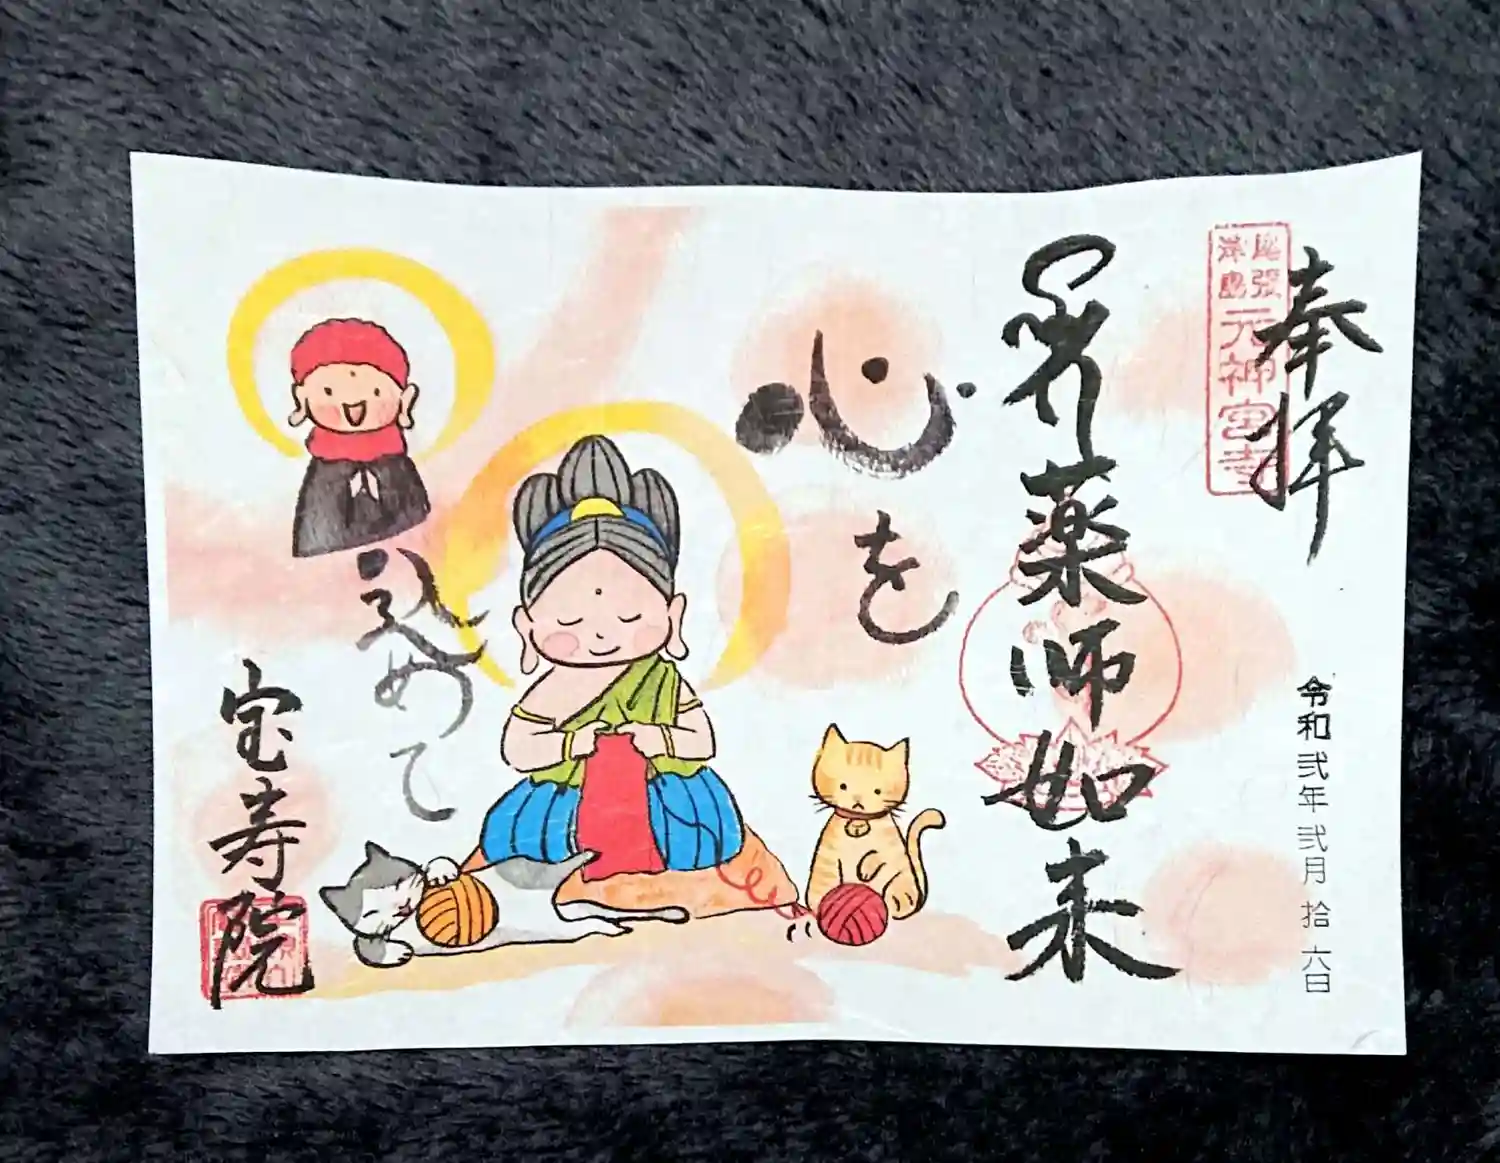 奉拝
尾張
津島
元神宮寺
令和弐年弐月拾六日
薬師如来
心を
込めて
宝寿院